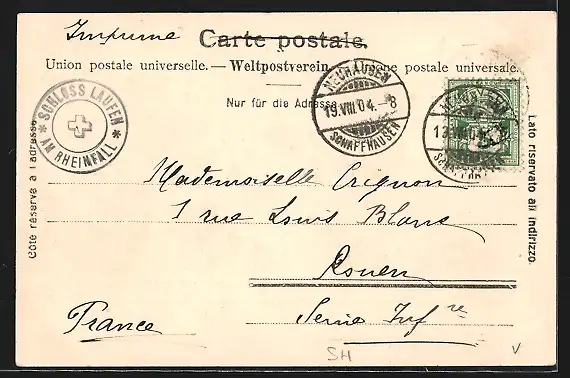 Imprimé
Carte postale.
Union postale universelle. — Weltpostverein. — Unione postale universale.
Nur für die Adresse
SCHLOSS LAUFEN
* AM RHEINFALL *
NEUHAUSEN
19.VIII.04. – 8
SCHAFFHAUSEN
NEUHAUSEN
19.VIII.04. – 8
Côté réservé à l'adresse
Lato riservato all'indirizzo.
Mademoiselle Crignon
1 rue Louis Blanc
Rouen
Seine Infre
France
SH
V